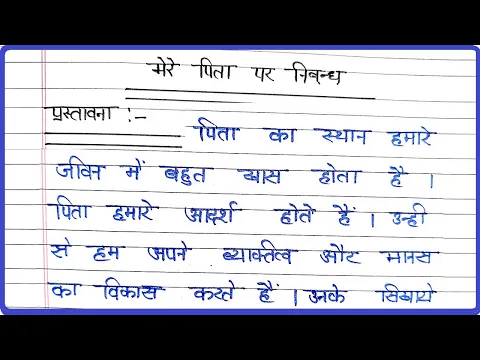 मेरे पिता पर निबन्ध
प्रस्तावना :-
पिता का स्थान हमारे
जीवन में बहुत खास होता है ।
पिता हमारे आदर्श होते हैं । उन्ही
से हम अपने व्यक्तित्व और मानस
का विकास करते हैं । उनके सिखाये